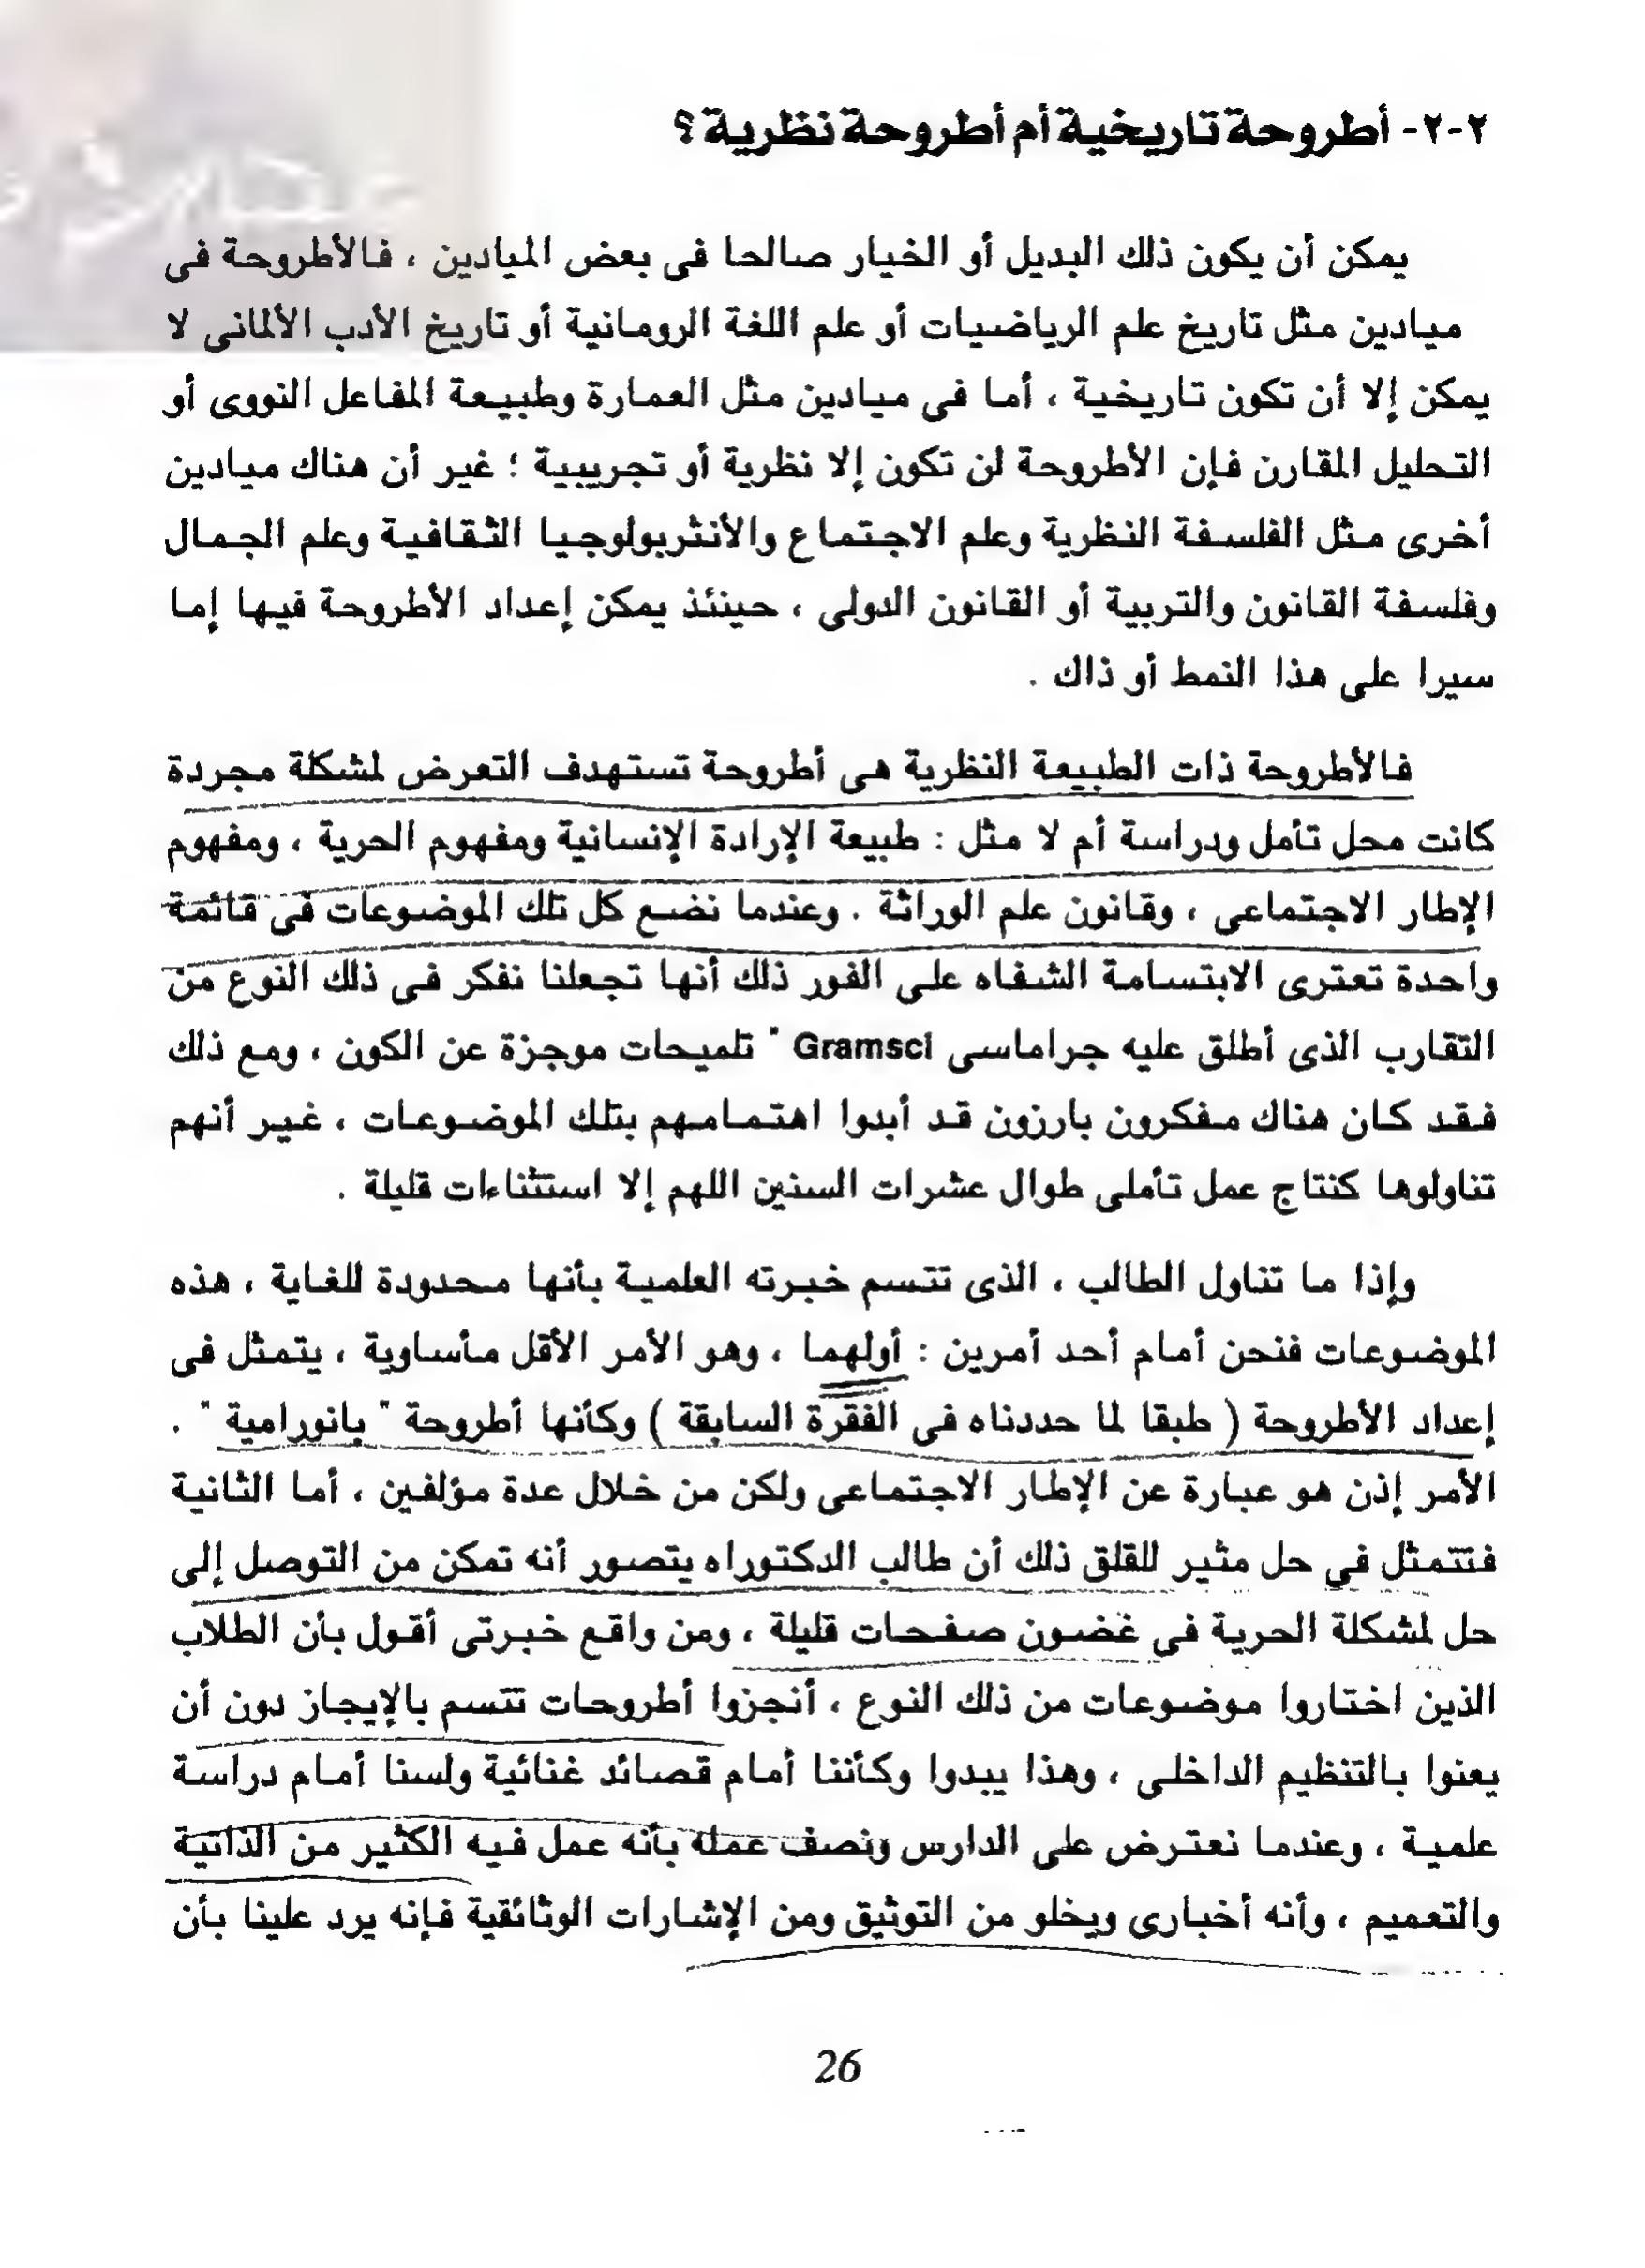 ٢-٢- أطروحة تاريخية أم أطروحة نظرية ؟
يمكن أن يكون ذلك البديل أو الخيار صالحا فى بعض الميادين ، فالأطروحة فى
ميادين مثل تاريخ علم الرياضيات أو علم اللغة الرومانية أو تاريخ الأدب الألمانى لا
يمكن إلا أن تكون تاريخية ، أما فى ميادين مثل العمارة وطبيعة المفاعل النووى أو
التحليل المقارن فإن الأطروحة لن تكون إلا نظرية أو تجريبية ؛ غير أن هناك ميادين
أخرى مثل الفلسفة النظرية وعلم الاجتماع والأنثربولوجيا الثقافية وعلم الجمال
وفلسفة القانون والتربية أو القانون الدولى ، حينئذ يمكن إعداد الأطروحة فيها إما
سيرا على هذا النمط أو ذاك .
فالأطروحة ذات الطبيعة النظرية هى أطروحة تستهدف التعرض لمشكلة مجردة
كانت محل تأمل ودراسة أم لا مثل : طبيعة الإرادة الإنسانية ومفهوم الحرية ، ومفهوم
الإطار الاجتماعى ، وقانون علم الوراثة . وعندما نضع كل تلك الموضوعات فى قائمة
واحدة تعترى الابتسامة الشفاه على الفور ذلك أنها تجعلنا نفكر فى ذلك النوع من
التقارب الذى أطلق عليه جراماسى Gramsci " تلميحات موجزة عن الكون ، ومع ذلك
فقد كان هناك مفكرون بارزون قد أبدوا اهتمامهم بتلك الموضوعات ، غير أنهم
تناولوها كنتاج عمل تأملى طوال عشرات السنين اللهم إلا استثناءات قليلة .
وإذا ما تناول الطالب ، الذى تتسم خبرته العلمية بأنها محدودة للغاية ، هذه
الموضوعات فنحن أمام أحد أمرين : أولهما ، وهو الأمر الأقل مأساوية ، يتمثل فى
إعداد الأطروحة ( طبقا لما حددناه فى الفقرة السابقة ) وكأنها أطروحة " بانورامية " .
الأمر إذن هو عبارة عن الإطار الاجتماعى ولكن من خلال عدة مؤلفين ، أما الثانية
فتتمثل في حل مثير للقلق ذلك أن طالب الدكتوراه يتصور أنه تمكن من التوصل إلى
حل لمشكلة الحرية فى غضون صفحات قليلة ، ومن واقع خبرتى أقول بأن الطلاب
الذين اختاروا موضوعات من ذلك النوع ، أنجزوا أطروحات تتسم بالإيجاز دون أن
يعنوا بالتنظيم الداخلى ، وهذا يبدوا وكأننا أمام قصائد غنائية ولسنا أمام دراسة
علمية ، وعندما نعترض على الدارس ونصف عمله بأنه عمل فيه الكثير من الذاتية
والتعميم ، وأنه أخبارى ويخلو من التوثيق ومن الإشارات الوثائقية فإنه يرد علينا بأن
26